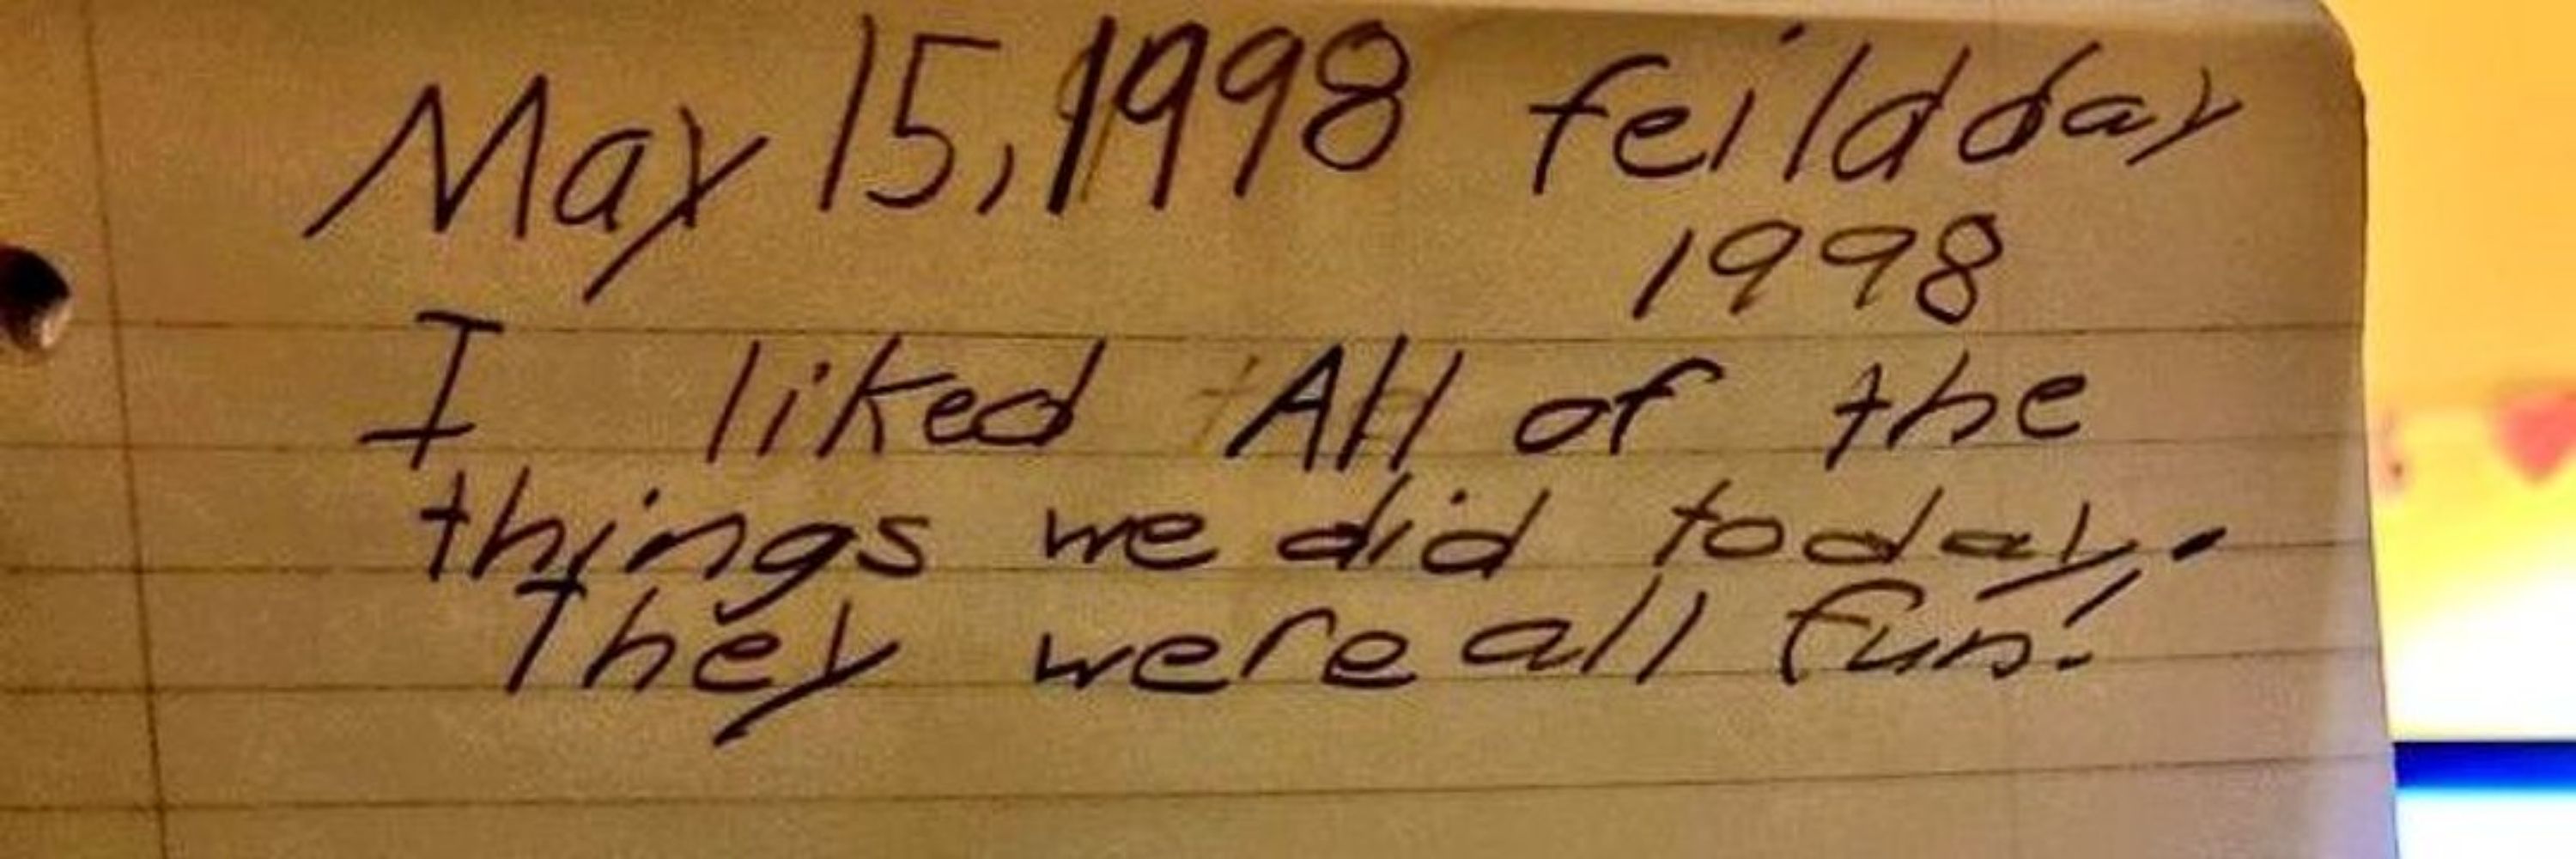 May 15, 1998 feild day
1998
I liked All of the
things we did today.
They were all fun!